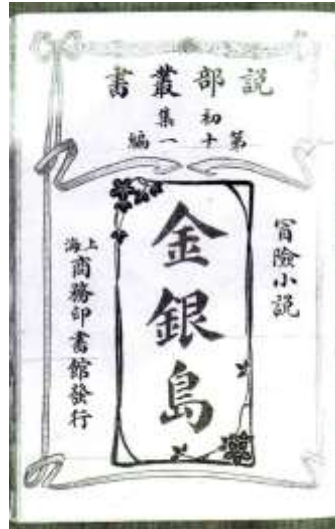 說部叢書
初集
第十一編
冒險小說
金銀島
上海商務印書館發行